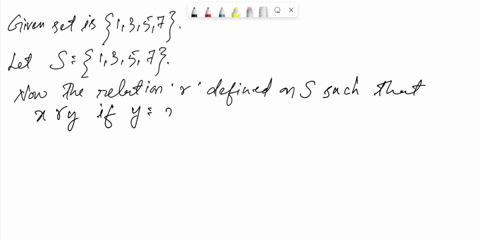 Given set is {1,3,5,7}.
Let S = {1,3,5,7}.
Now the relation 'r' defined on S such that
x r y if y =